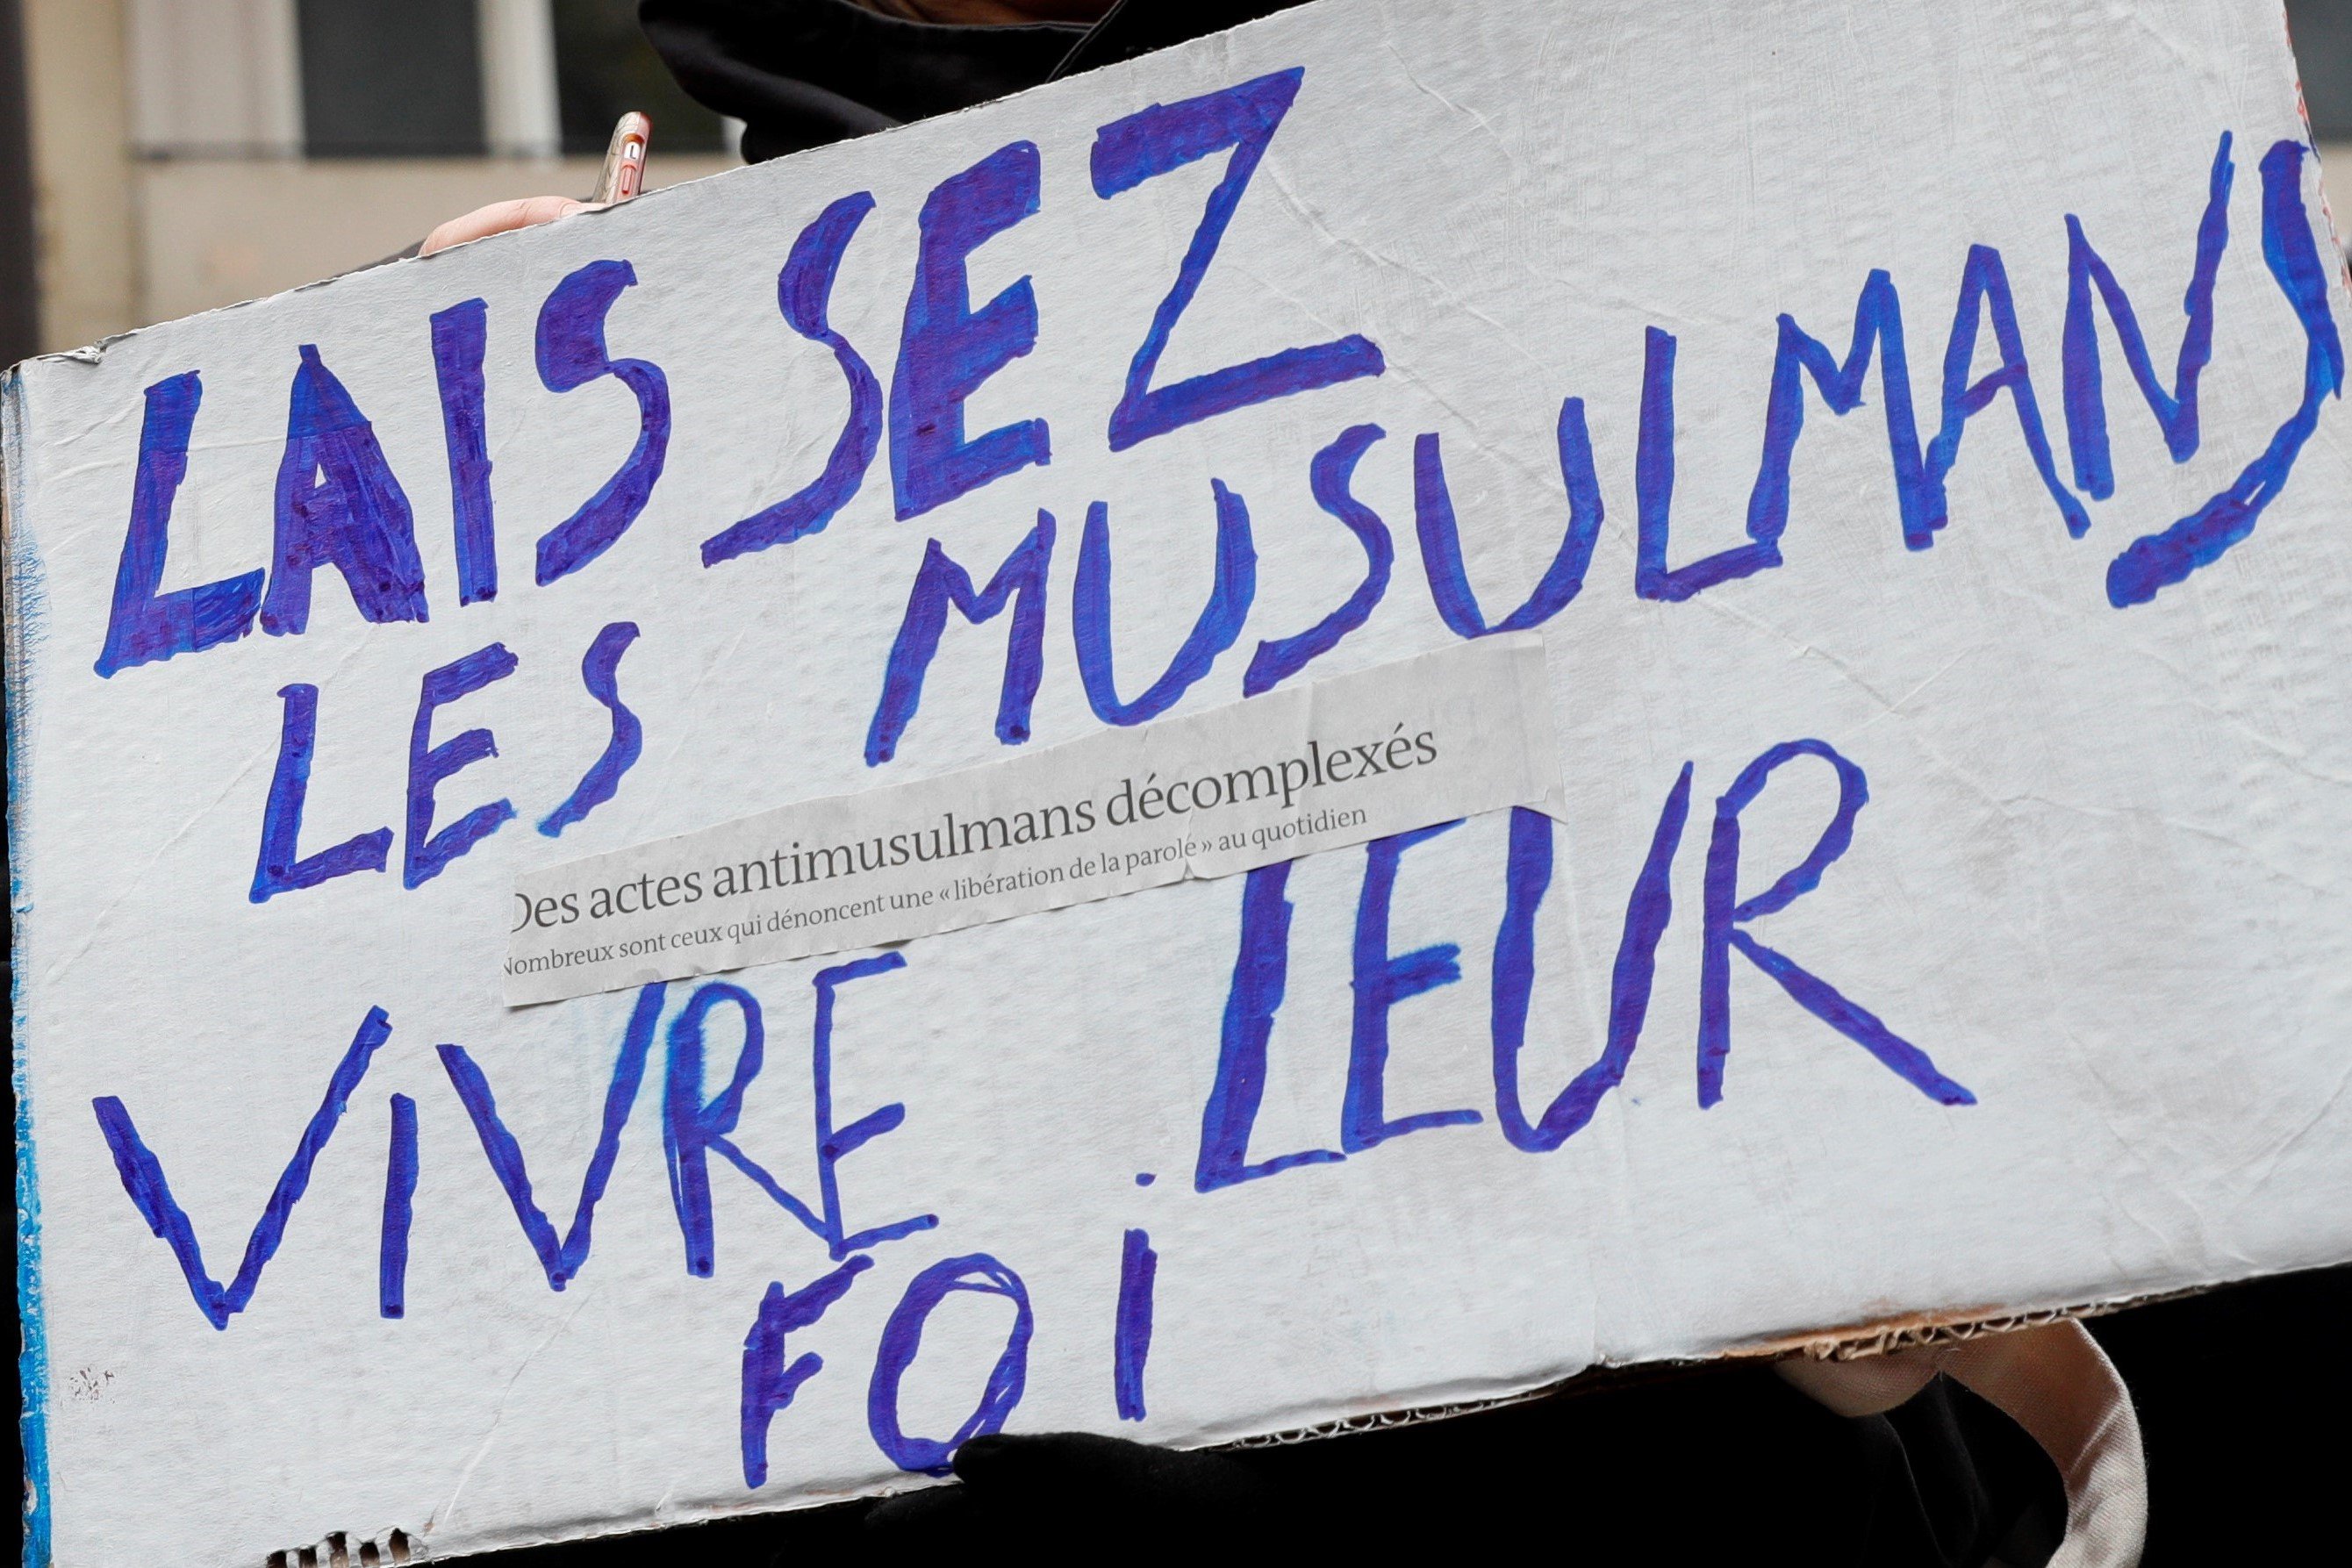 LAISSEZ
LES MUSULMANS
Des actes antimusulmans décomplexés
Nombreux sont ceux qui dénoncent une « libération de la parole » au quotidien
VIVRE LEUR
FOI